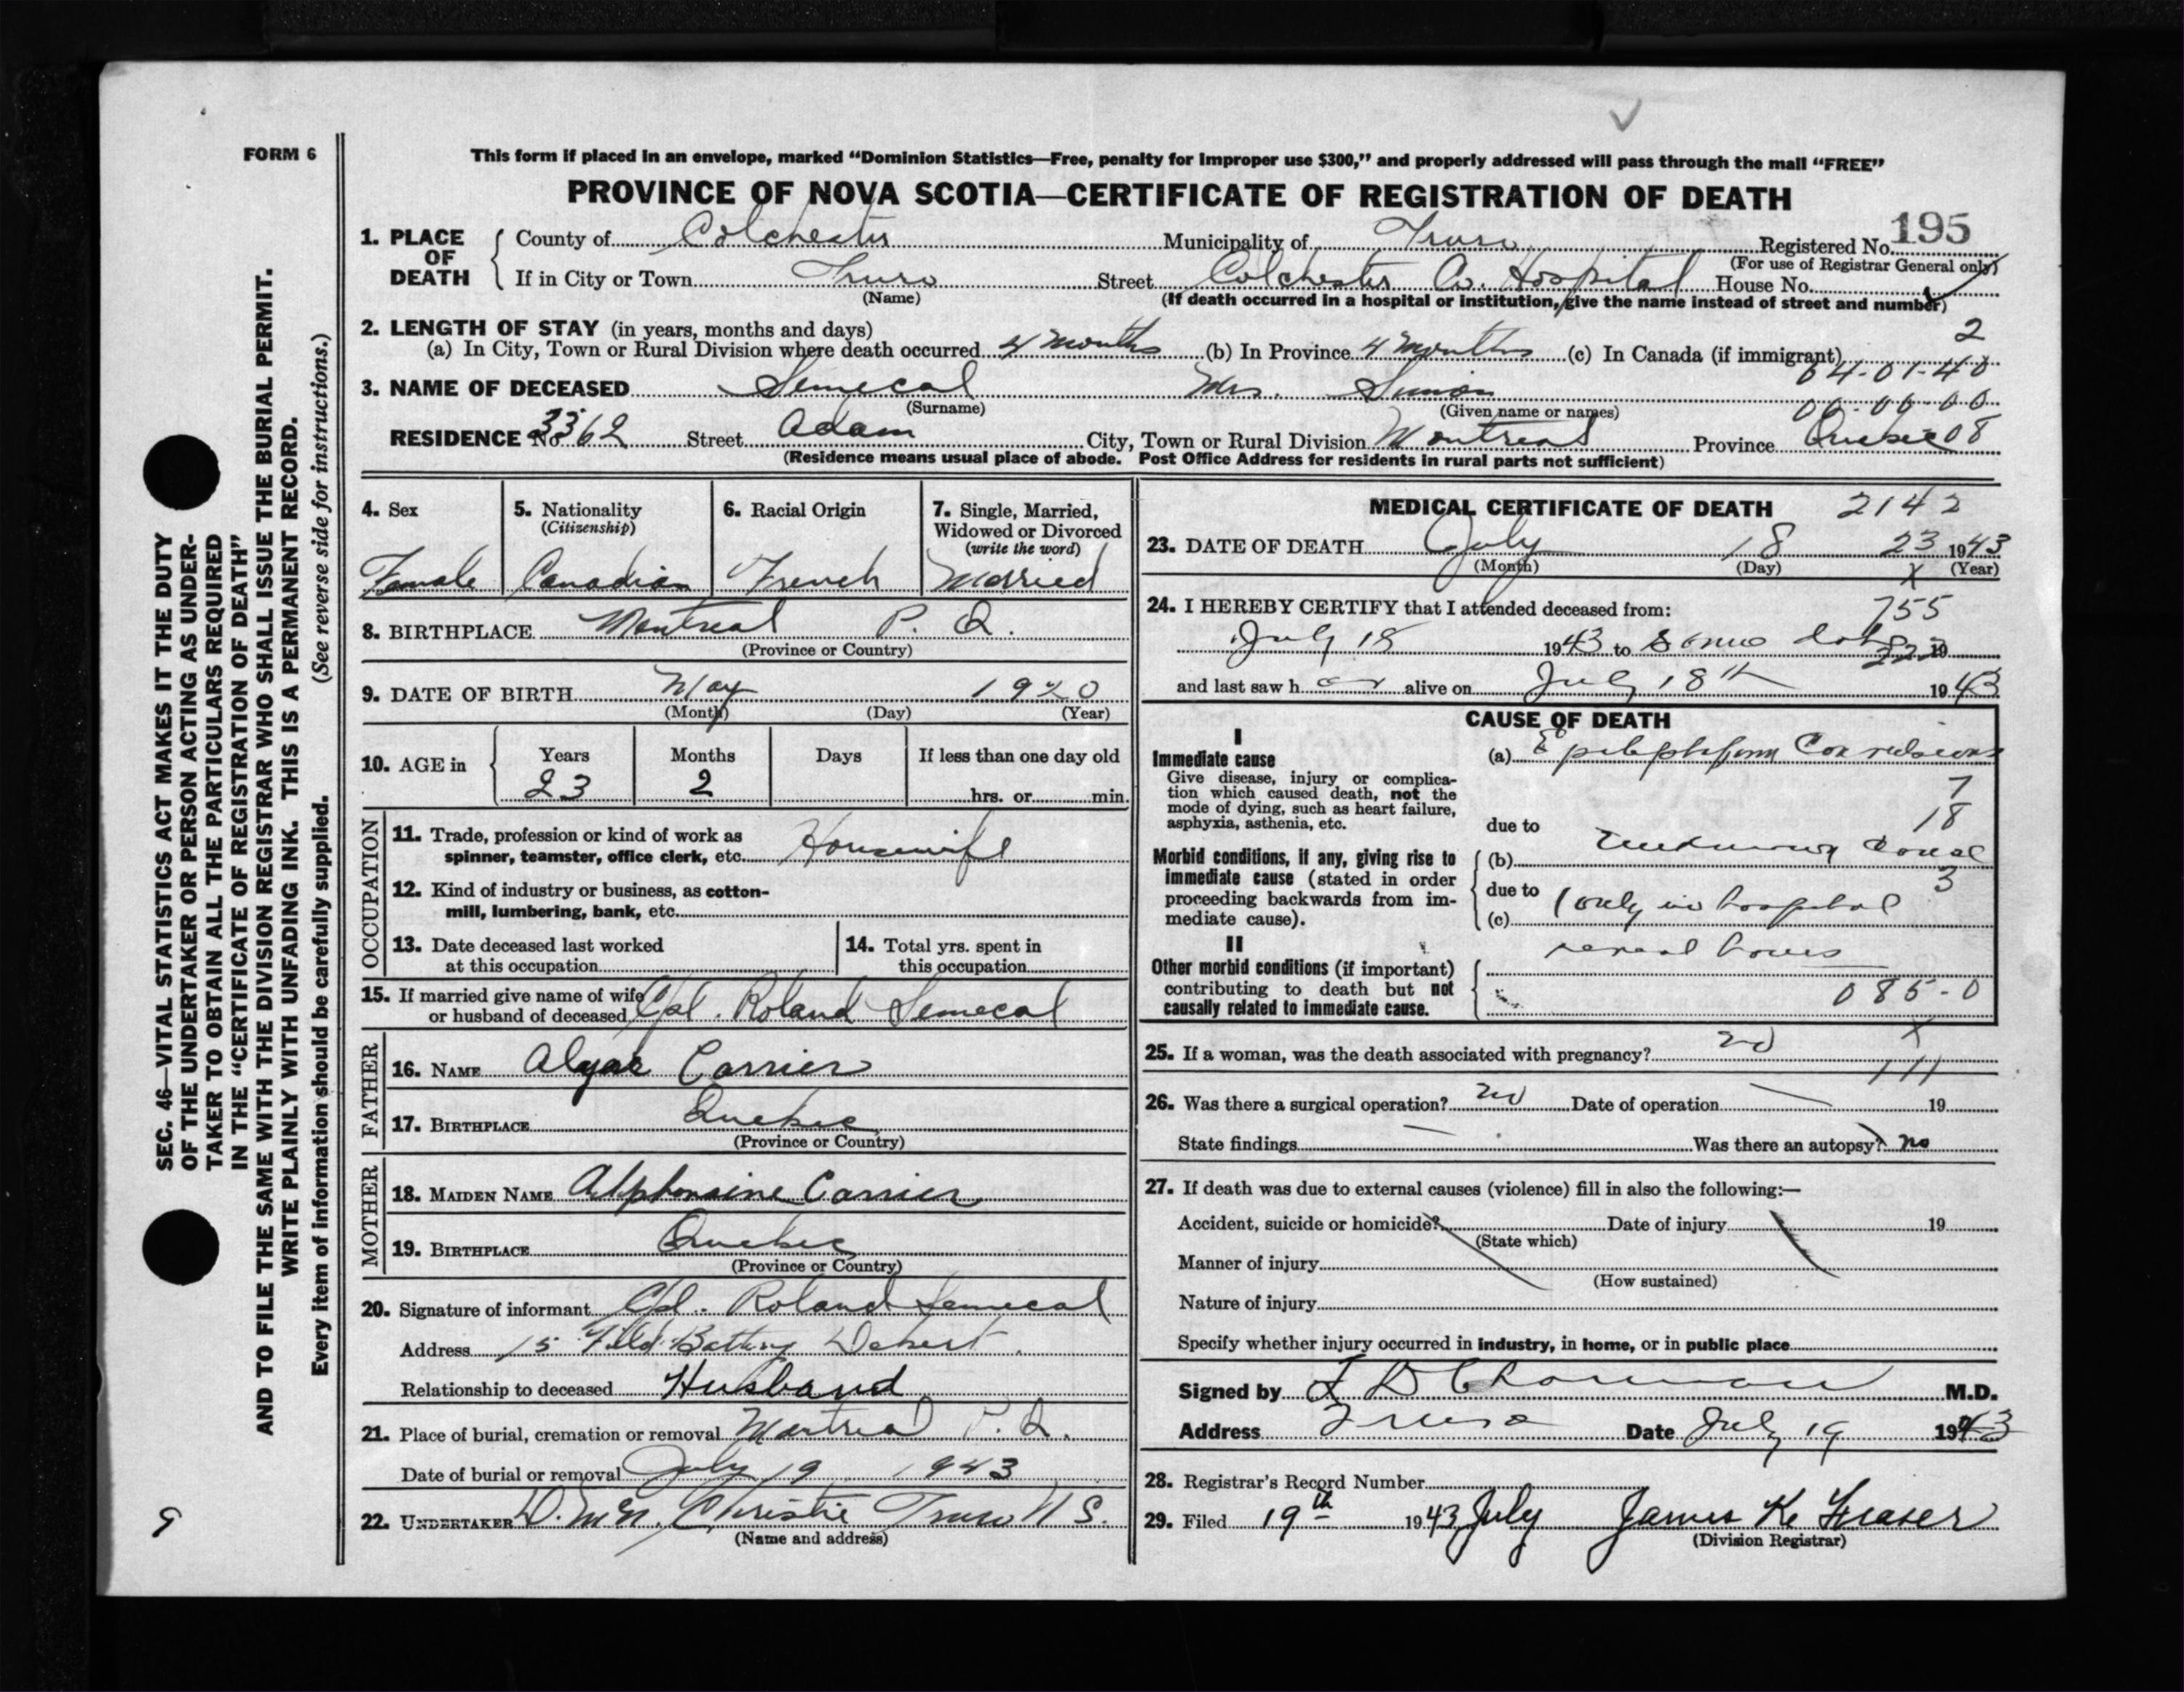 FORM 6
This form if placed in an envelope, marked “Dominion Statistics—Free, penalty for improper use $300,” and properly addressed will pass through the mail “FREE”
PROVINCE OF NOVA SCOTIA—CERTIFICATE OF REGISTRATION OF DEATH
195
1. PLACE OF DEATH County of Colchester Municipality of Truro Registered No.
(For use of Registrar General only)
If in City or Town Truro Street Colchester Co. Hospital House No.
(Name) (If death occurred in a hospital or institution, give the name instead of street and number)
2. LENGTH OF STAY (in years, months and days) 2
(a) In City, Town or Rural Division where death occurred 4 months (b) In Province 4 months (c) In Canada (if immigrant)
64-01-40
3. NAME OF DECEASED Senecal Mrs. Simon
(Surname) (Given name or names) 00-00-00
RESIDENCE No 3362 Street Adam City, Town or Rural Division Montreal Province Quebec 08
(Residence means usual place of abode. Post Office Address for residents in rural parts not sufficient)
4. Sex 5. Nationality (Citizenship) 6. Racial Origin 7. Single, Married, Widowed or Divorced (write the word)
Female Canadian French Married
8. BIRTHPLACE Montreal P. Q.
(Province or Country)
9. DATE OF BIRTH May 1920
(Month) (Day) (Year)
10. AGE in Years Months Days If less than one day old
23 2 hrs. or min.
OCCUPATION
11. Trade, profession or kind of work as
spinner, teamster, office clerk, etc. Housewife
12. Kind of industry or business, as cotton-
mill, lumbering, bank, etc.
13. Date deceased last worked
at this occupation
14. Total yrs. spent in
this occupation
15. If married give name of wife
or husband of deceased Cpl. Roland Senecal
FATHER
16. NAME Carrier
17. BIRTHPLACE Quebec
(Province or Country)
MOTHER
18. MAIDEN NAME Alphonsine Carrier
19. BIRTHPLACE Quebec
(Province or Country)
20. Signature of informant Cpl. Roland Senecal
Address 15 Field Battery Debert.
Relationship to deceased Husband
21. Place of burial, cremation or removal Montreal P. Q.
Date of burial or removal July 19 1943
22. UNDERTAKER Christie Truro N S.
(Name and address)
MEDICAL CERTIFICATE OF DEATH 2142
23. DATE OF DEATH July 18 23 1943
(Month) (Day) (Year)
X
24. I HEREBY CERTIFY that I attended deceased from: 755
July 18 1943 to same date 19
and last saw h er alive on July 18th 1943
CAUSE OF DEATH
I
Immediate cause
Give disease, injury or complica-
tion which caused death, not the
mode of dying, such as heart failure,
asphyxia, asthenia, etc.
(a) Epileptiform Convulsions
7
18
due to
Morbid conditions, if any, giving rise to
immediate cause (stated in order
proceeding backwards from im-
mediate cause).
(b) cause
3
due to
(c) (only in hospital
several hours
II
Other morbid conditions (if important)
contributing to death but not
causally related to immediate cause.
085-0
X
25. If a woman, was the death associated with pregnancy? no
111
26. Was there a surgical operation? no Date of operation 19
State findings Was there an autopsy? no
27. If death was due to external causes (violence) fill in also the following:—
Accident, suicide or homicide? Date of injury 19
(State which)
Manner of injury
(How sustained)
Nature of injury
Specify whether injury occurred in industry, in home, or in public place
Signed by M.D.
Address Truro Date July 19 1943
28. Registrar's Record Number
29. Filed 19th 1943 July James K. Fraser
(Division Registrar)
SEC. 46—VITAL STATISTICS ACT MAKES IT THE DUTY
OF THE UNDERTAKER OR PERSON ACTING AS UNDER-
TAKER TO OBTAIN ALL THE PARTICULARS REQUIRED
IN THE “CERTIFICATE OF REGISTRATION OF DEATH”
AND TO FILE THE SAME WITH THE DIVISION REGISTRAR WHO SHALL ISSUE THE BURIAL PERMIT.
WRITE PLAINLY WITH UNFADING INK. THIS IS A PERMANENT RECORD.
Every item of information should be carefully supplied. (See reverse side for instructions.)
9